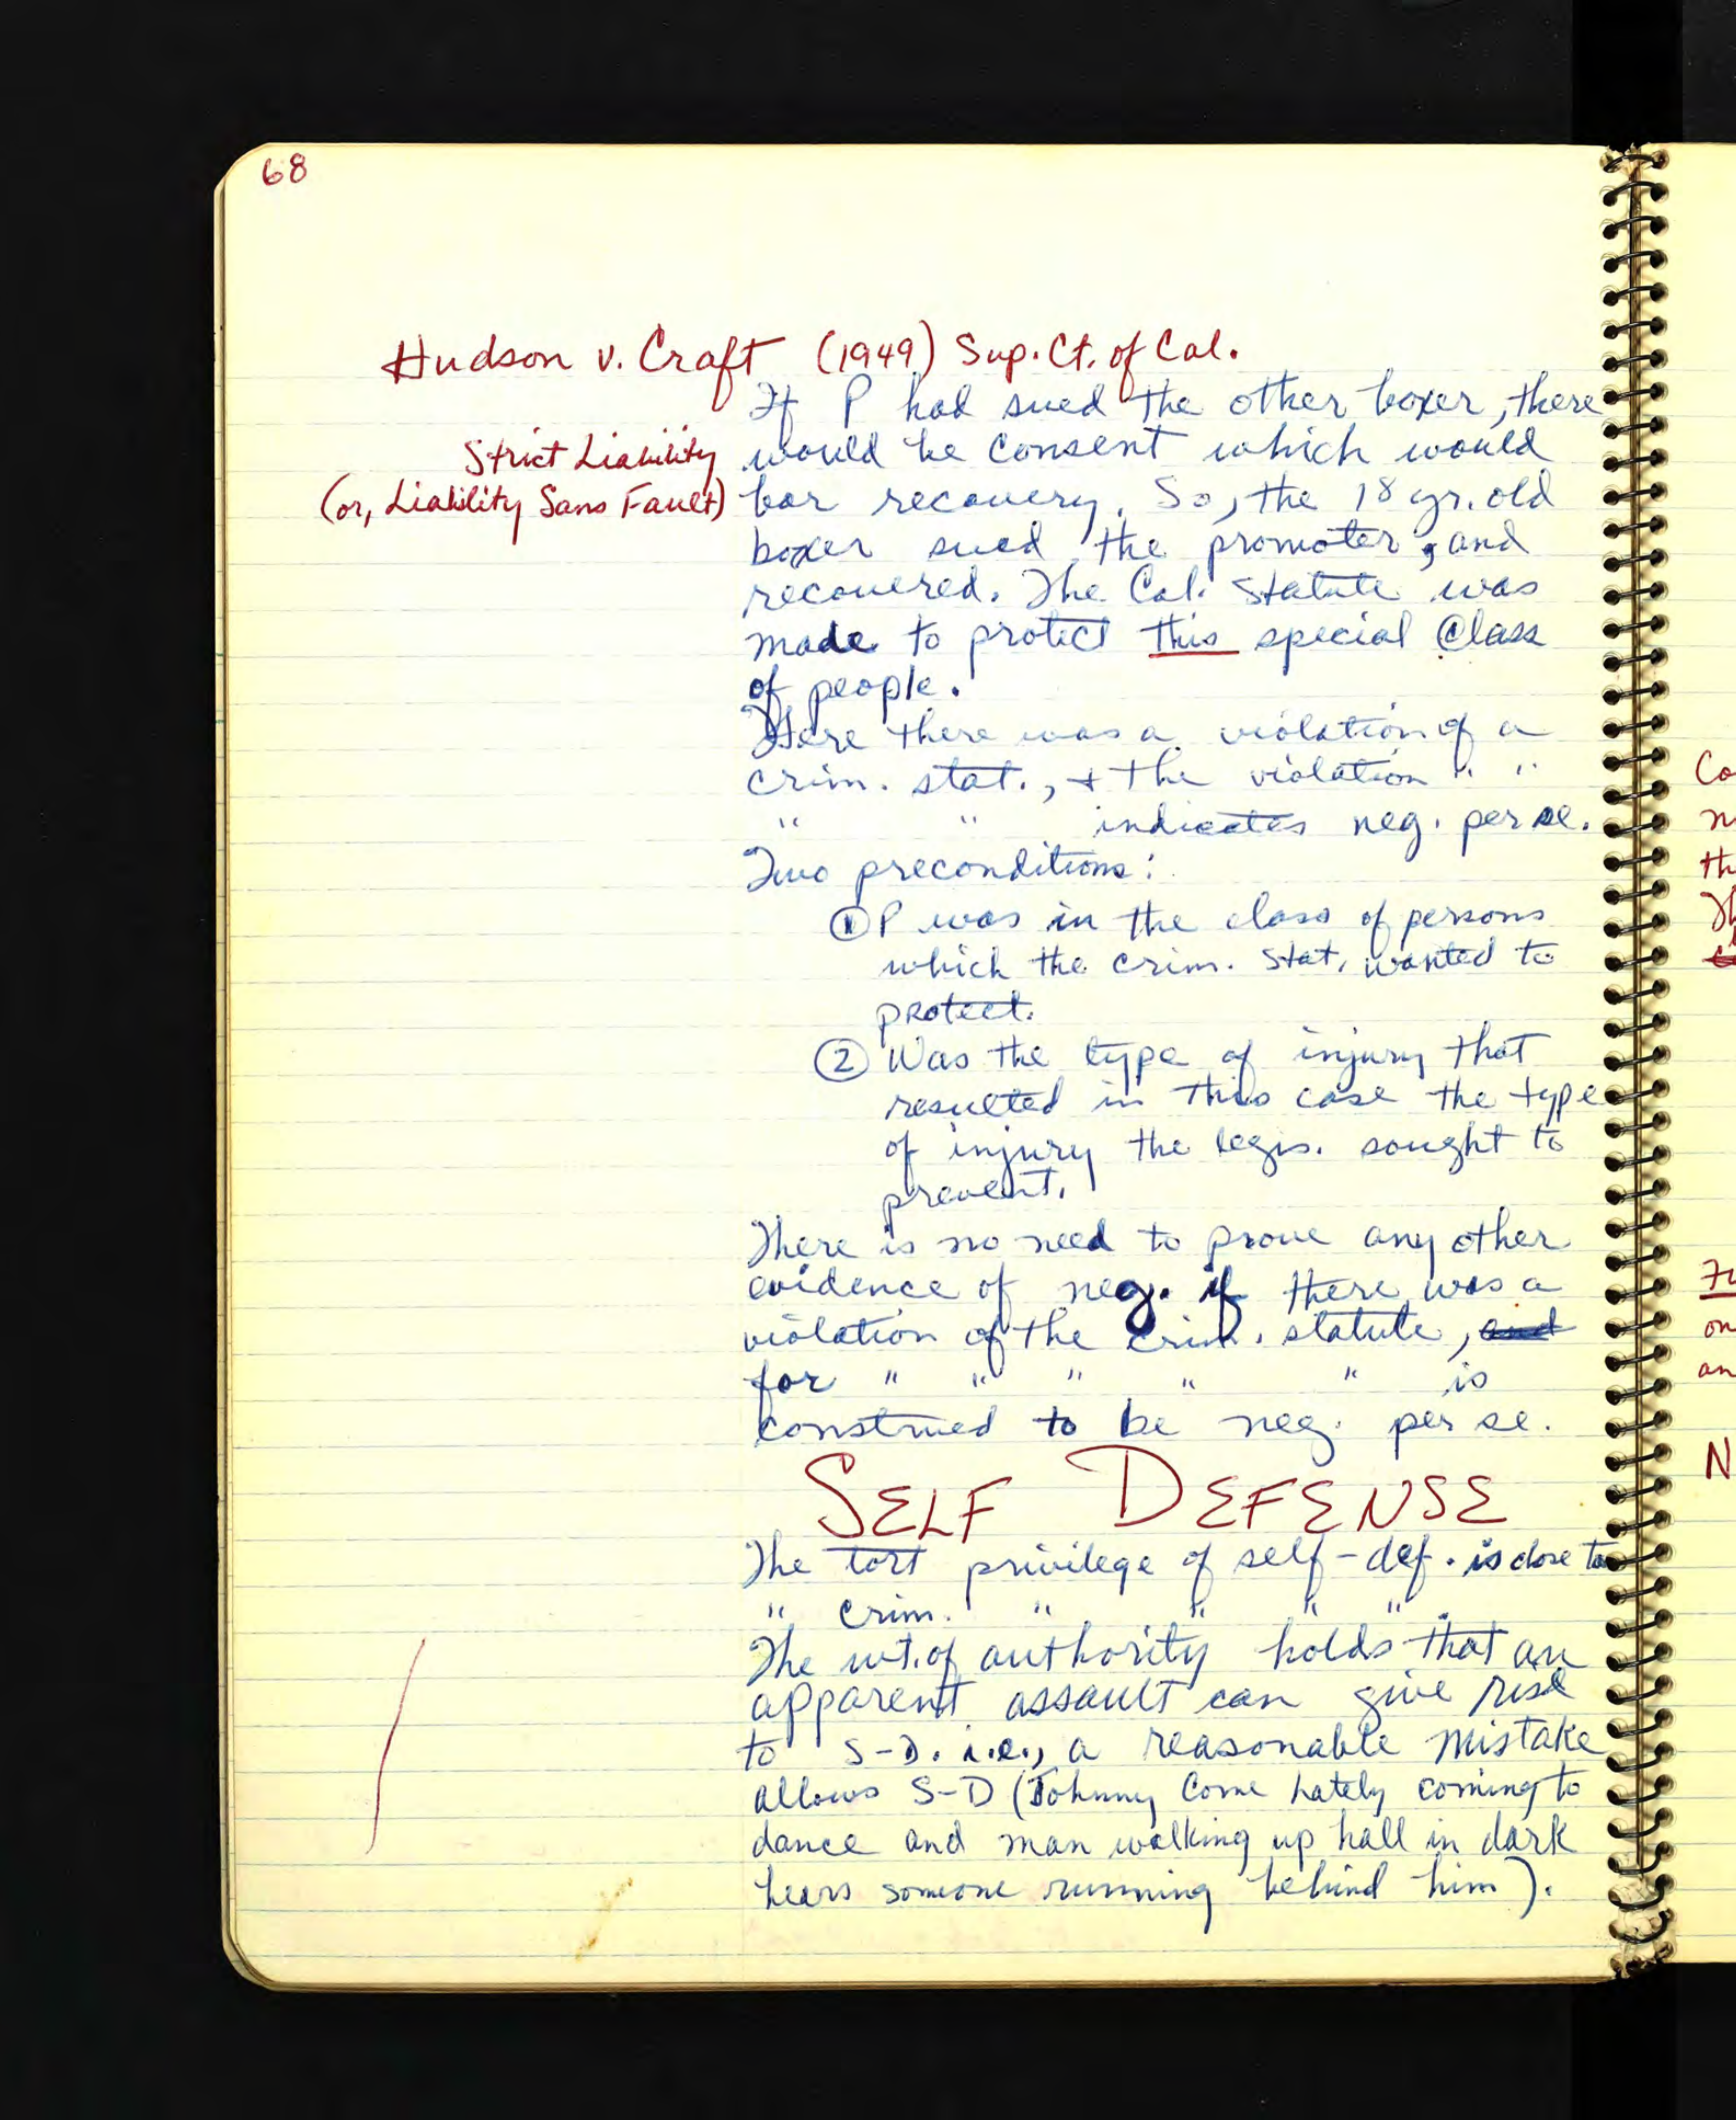 68
Hudson v. Craft (1949) Sup. Ct. of Cal.
If P had sued the other boxer, there
Strict Liability
would be consent which would
(or, Liability Sans Fault)
bar recovery. So, the 18 yr. old
boxer sued the promoter, and
recovered. The Cal. statute was
made to protect this special Class
of people.
Here there was a violation of a
crim. stat., + the violation " "
" " indicates neg. per se.
Two preconditions:
① P was in the class of persons
which the crim. stat. wanted to
protect.
② Was the type of injury that
resulted in this case the type
of injury the legis. sought to
prevent.
There is no need to prove any other
evidence of neg. if there was a
violation of the crim. statute, and
for " " " " " is
construed to be neg. per se.
SELF DEFENSE
The tort privilege of self-def. is close to
" crim. " " " "
The wt. of authority holds that an
apparent assault can give rise
to S-D. i.e., a reasonable mistake
allows S-D (Johnny Come Lately coming to
dance and man walking up hall in dark
hears someone running behind him).
Co
n
th
Th
Fu
on
an
N